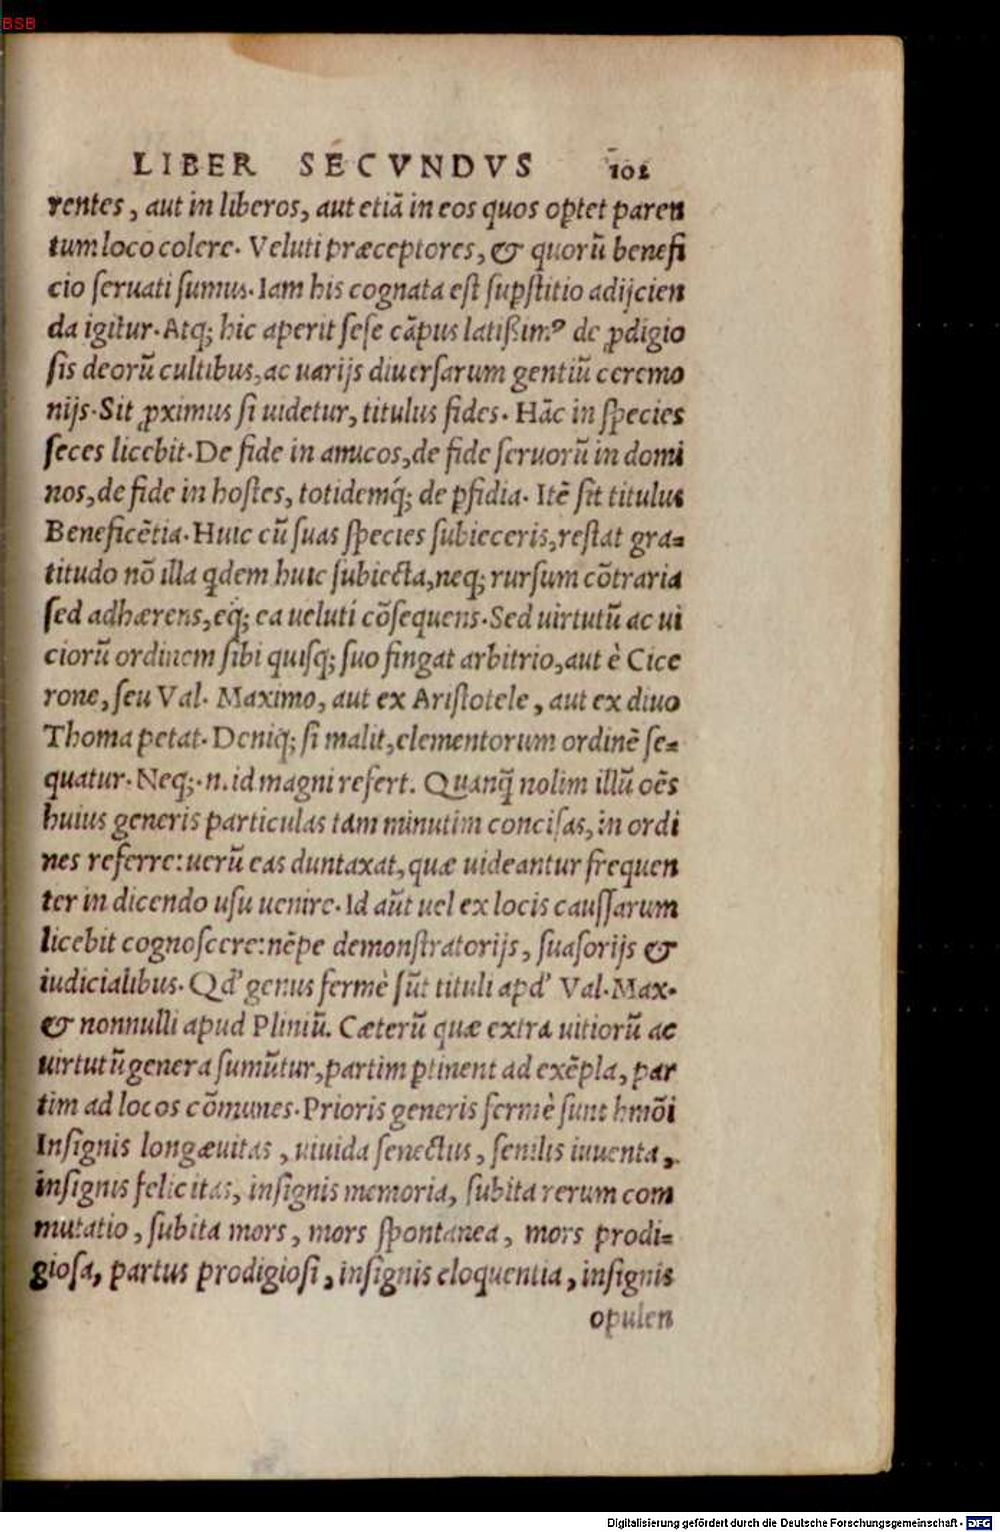 BSB
LIBER SECVNDVS 101
rentes, aut in liberos, aut etiā in eos quos optet paren
tum loco colere. Veluti præceptores, & quorū benefi
cio seruati sumus. Iam his cognata est suꝑstitio adijcien
da igitur. Atq; hic aperit sese cāpus latißimꝰ de ꝓdigio
sis deorū cultibus, ac uarijs diuersarum gentiū ceremo
nijs. Sit ꝓximus si uidetur, titulus fides. Hāc in species
seces licebit. De fide in amicos, de fide seruorū in domi
nos, de fide in hostes, totidemq́; de ꝑfidia. Itē sit titulus
Beneficētia. Huic cū suas species subieceris, restat gra=
titudo nō illa qdem huic subiecta, neq; rursum cōtraria
sed adhærens, eq́; ea ueluti cōsequens. Sed uirtutū ac ui
ciorū ordinem sibi quisq; suo fingat arbitrio, aut è Cice
rone, seu Val. Maximo, aut ex Aristotele, aut ex diuo
Thoma petat. Deniq; si malit, elementorum ordinē se=
quatur. Neq;.n. id magni refert. Quanq̄ nolim illū oēs
huius generis particulas tam minutim concisas, in ordi
nes referre: uerū eas duntaxat, quæ uideantur frequen
ter in dicendo usu uenire. Id aūt uel ex locis caussarum
licebit cognoscere: nēpe demonstratorijs, suasorijs &
iudicialibus. Qd' genus fermè sūt tituli apd' Val. Max.
& nonnulli apud Pliniū. Cæterū quæ extra uitiorū ac
uirtutū genera sumūtur, partim ꝑtinent ad exēpla, par
tim ad locos cōmunes. Prioris generis fermè sunt hmōi
Insignis longæuitas, uiuida senectus, senilis iuuenta,
insignis felicitas, insignis memoria, subita rerum com
mutatio, subita mors, mors spontanea, mors prodi=
giosa, partus prodigiosi, insignis eloquentia, insignis
opulen
Digitalisierung gefördert durch die Deutsche Forschungsgemeinschaft - DFG